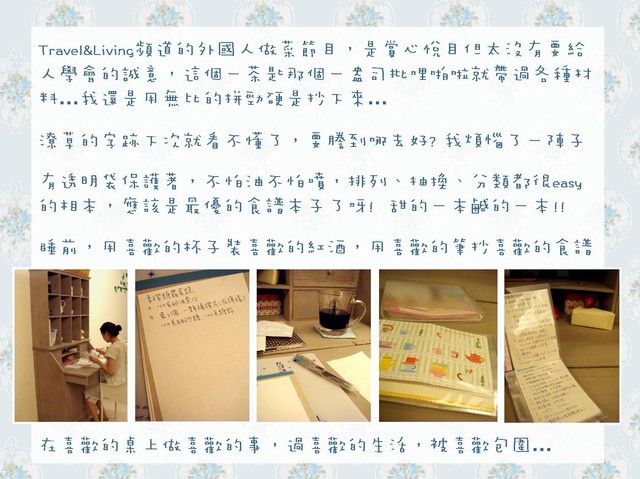 Travel&Living頻道的外國人做菜節目，是賞心悅目但太沒有要給
人學會的誠意，這個一茶匙那個一盎司批哩啪啦就帶過各種材
料...我還是用無比的拼勁硬是抄下來...
潦草的字跡下次就看不懂了，要謄到哪去好?我煩惱了一陣子
有透明袋保護著，不怕油不怕噴，排列、抽換、分類都很easy
的相本，應該是最優的食譜本子了呀! 甜的一本鹹的一本!!
睡前，用喜歡的杯子裝喜歡的紅酒，用喜歡的筆抄喜歡的食譜
在喜歡的桌上做喜歡的事，過喜歡的生活，被喜歡包圍...